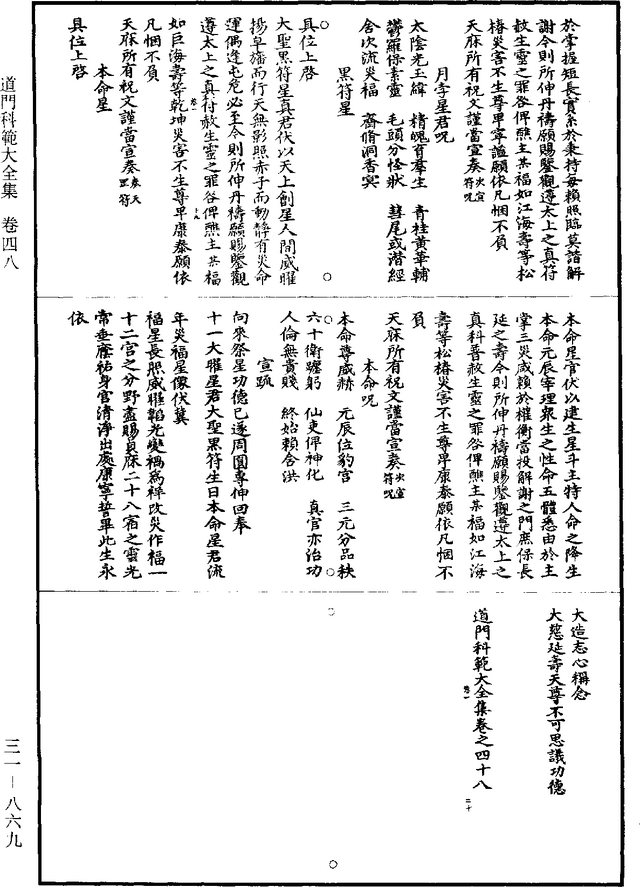 於掌握短長實系於秉持毎賴照臨莫諧解
謝令則所伸丹禱願賜鑒觀遵太上之真符
赦生靈之罪咎俾醮主某福如江海壽等松
椿災害不生尊卑寧謐願依凡悃不負
天庥所有祝文謹當宣奏 次宣符呪
月孛星君呪
太陰光玉緯 精魄育羣生 青桂黃華輔
鬱羅保素靈 毛頭分怪狀 彗尾或潛經
舍次流災福 齋脩洞香㝠
黑符星
具位上啓
大聖黑符星真君伏以天上創星人間威曜
揚皁旛而行天無影照赤子而動靜有災命
運偶逢屯危必至令則所伸丹禱願賜鑒觀
遵太上之真符赦生靈之罪咎俾醮主某福
如巨海壽等乾坤災害不生尊卑康泰願依
凡悃不負
天庥所有祝文謹當宣奏
本命星
具位上啓
本命星官伏以建生星斗主持人命之降生
本命元辰宰理衆生之性命五體悉由於主
掌三災咸賴於權衡當投解謝之門庶保長
延之壽令則所伸丹禱願賜鑒觀遵太上之
真科普赦生靈之罪咎俾醮主某福如江海
壽等松椿災害不生尊卑康泰願依凡悃不
負
天庥所有祝文謹當宣奏 次宣符呪
本命呪
本命尊威赫 元辰位豹宮 三元分品秩
六十衛躔躬 仙吏俾神化 真官亦治功
人倫無貴賤 終始賴含洪
宣䟽
向來祭星功德已遂周圓專伸回奉
十一大曜星君大聖黑符生日本命星君流
年災福星像伏冀
福星長照威曜韜光變禍爲祥改災作福一
十二宮之分野盡賜貞庥二十八宿之靈光
常垂廕祐身宮清淨出處康寧誓畢此生永
依
大造志心稱念
大慈延壽天尊不可思議功德
道門科範大全集卷之四十八
道門科範大全集 卷四八
三一—八六九